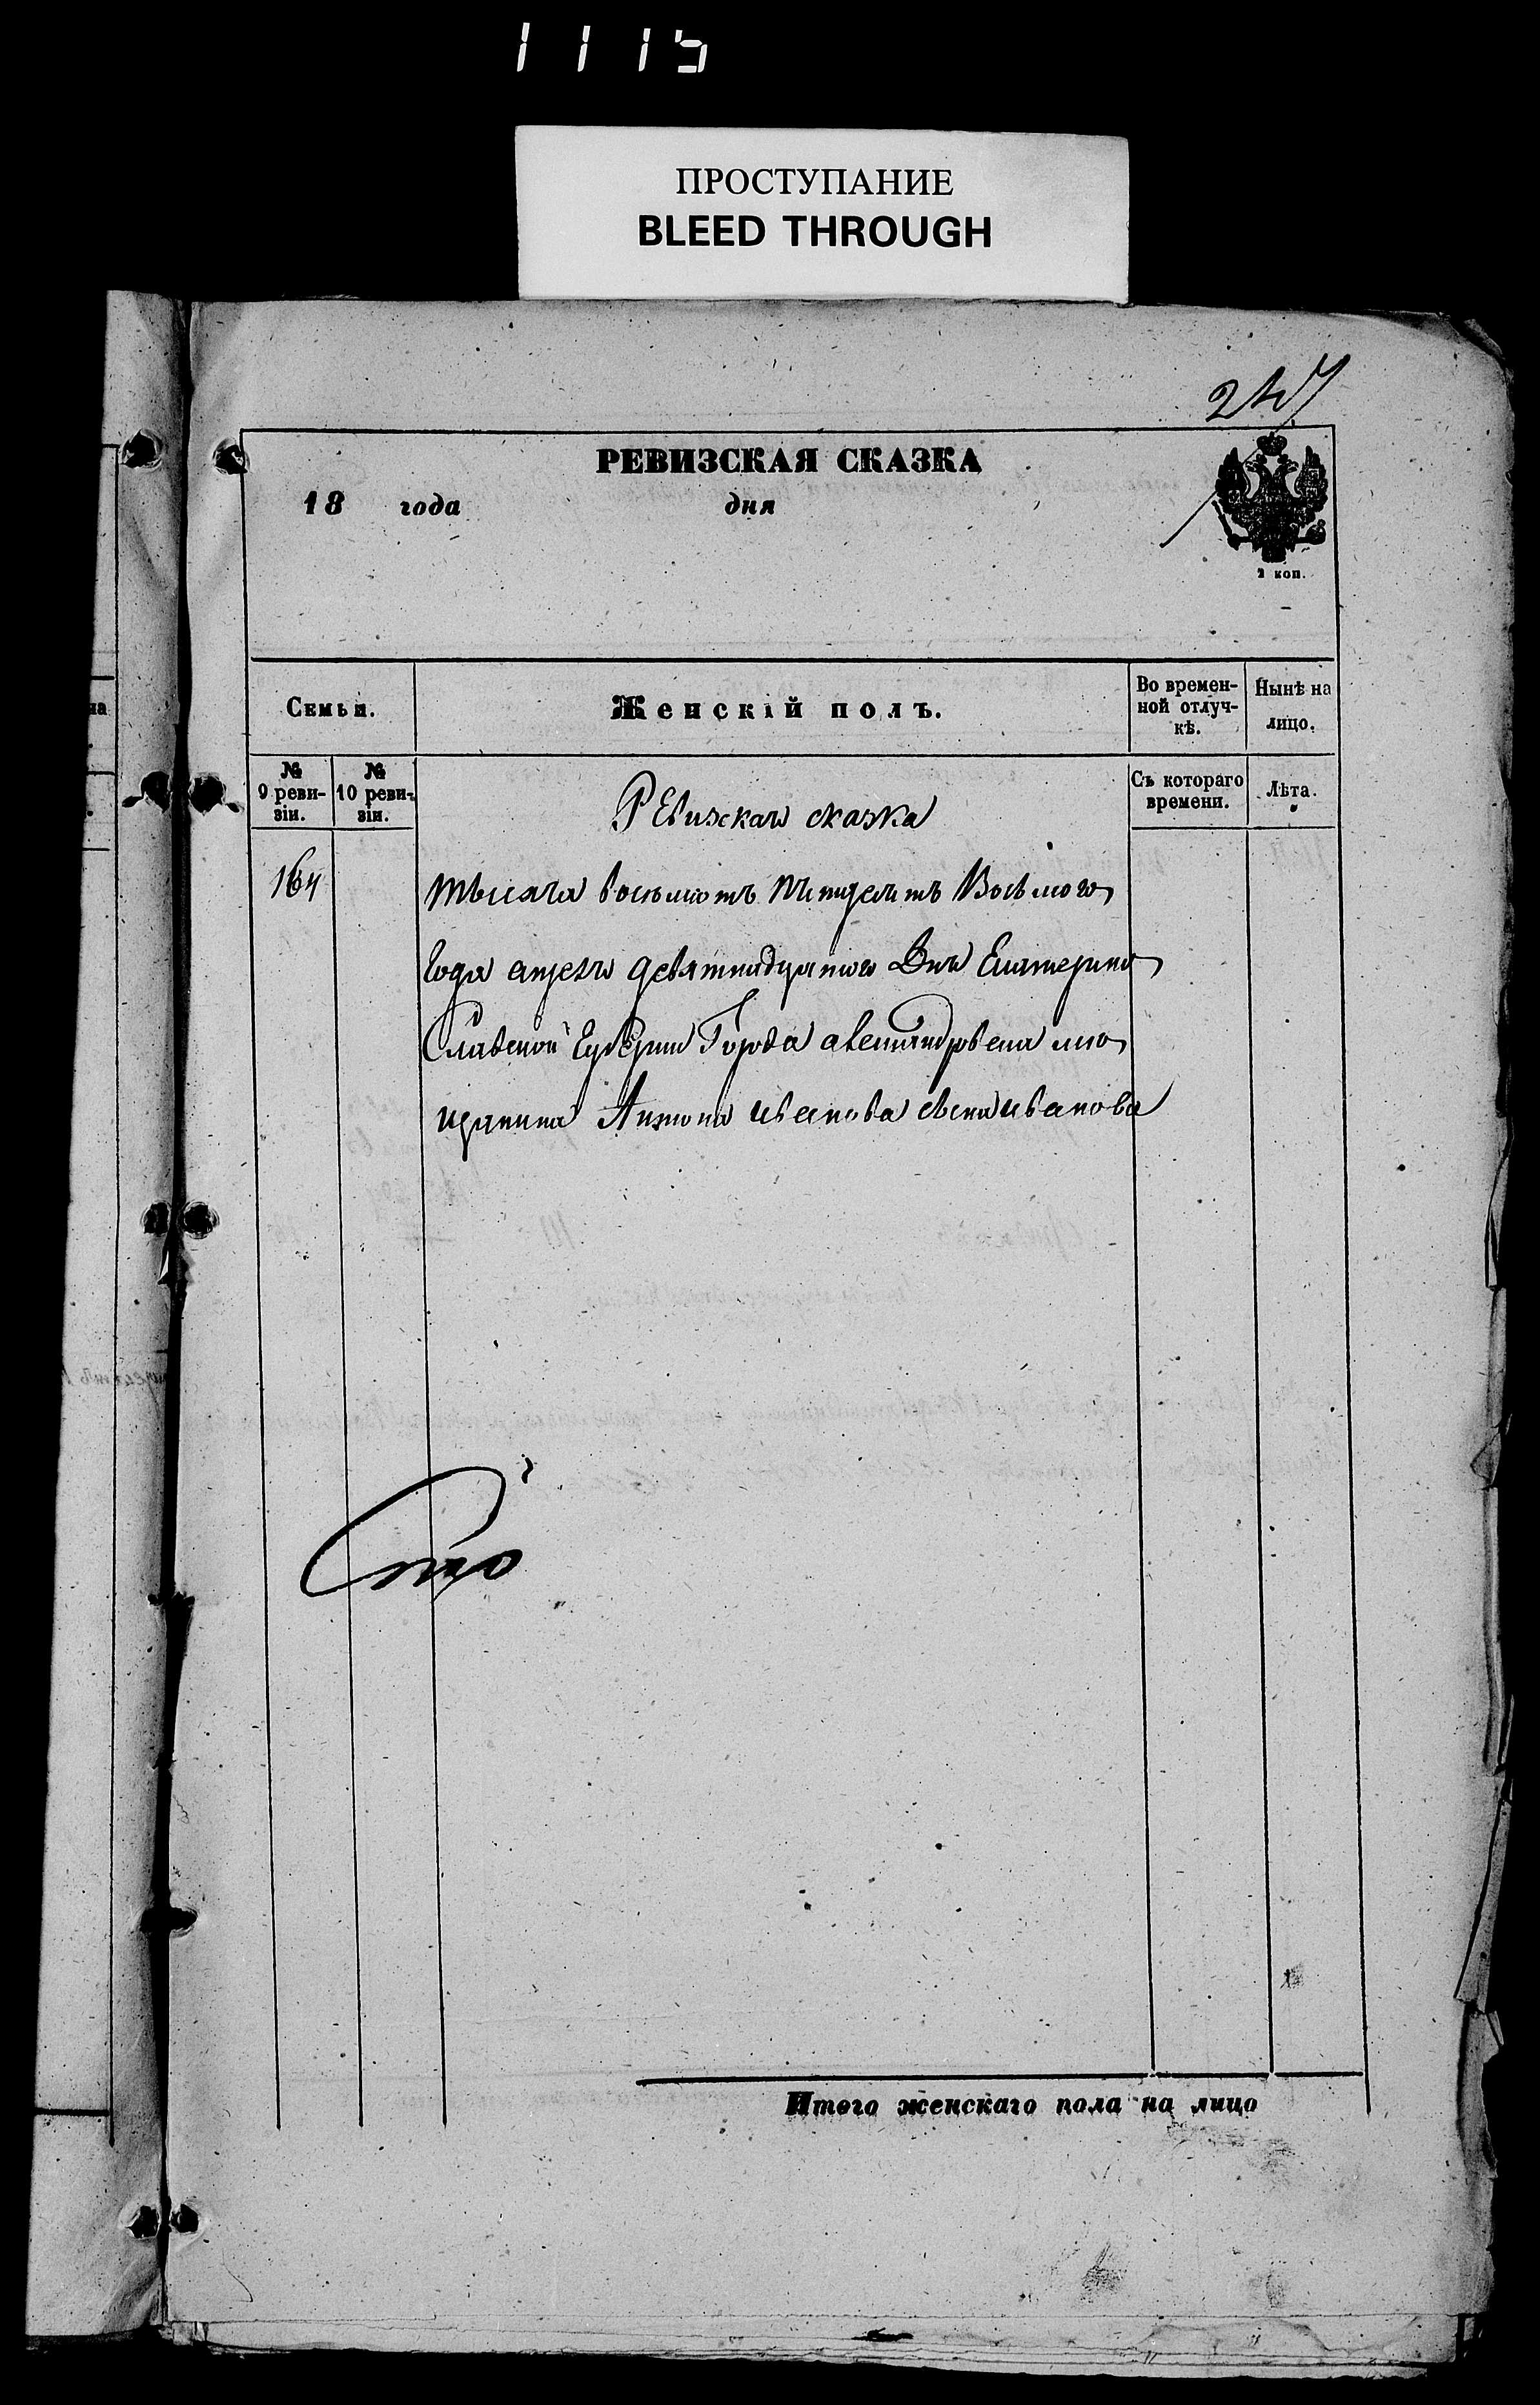 1115
ПРОСТУПАНИЕ
BLEED THROUGH
247
РЕВИЗСКАЯ СКАЗКА
18 года дня
2 коп.
Семьи.
Женскій полъ.
Во времен-
ной отлуч-
кѣ.
Нынѣ на
лицо.
№
9 реви-
зіи.
№
10 реви-
зіи.
Съ котораго
времени.
Лѣта.
Ревизская сказка
164
тысяча восьмотъ пятидесятъ Восьмого
Года апреля девятнадцатого Дня Екатерино
Славской Губернии Города александровска
щанина Антона иванова иванова
Сто
Итого женскаго пола на лицо